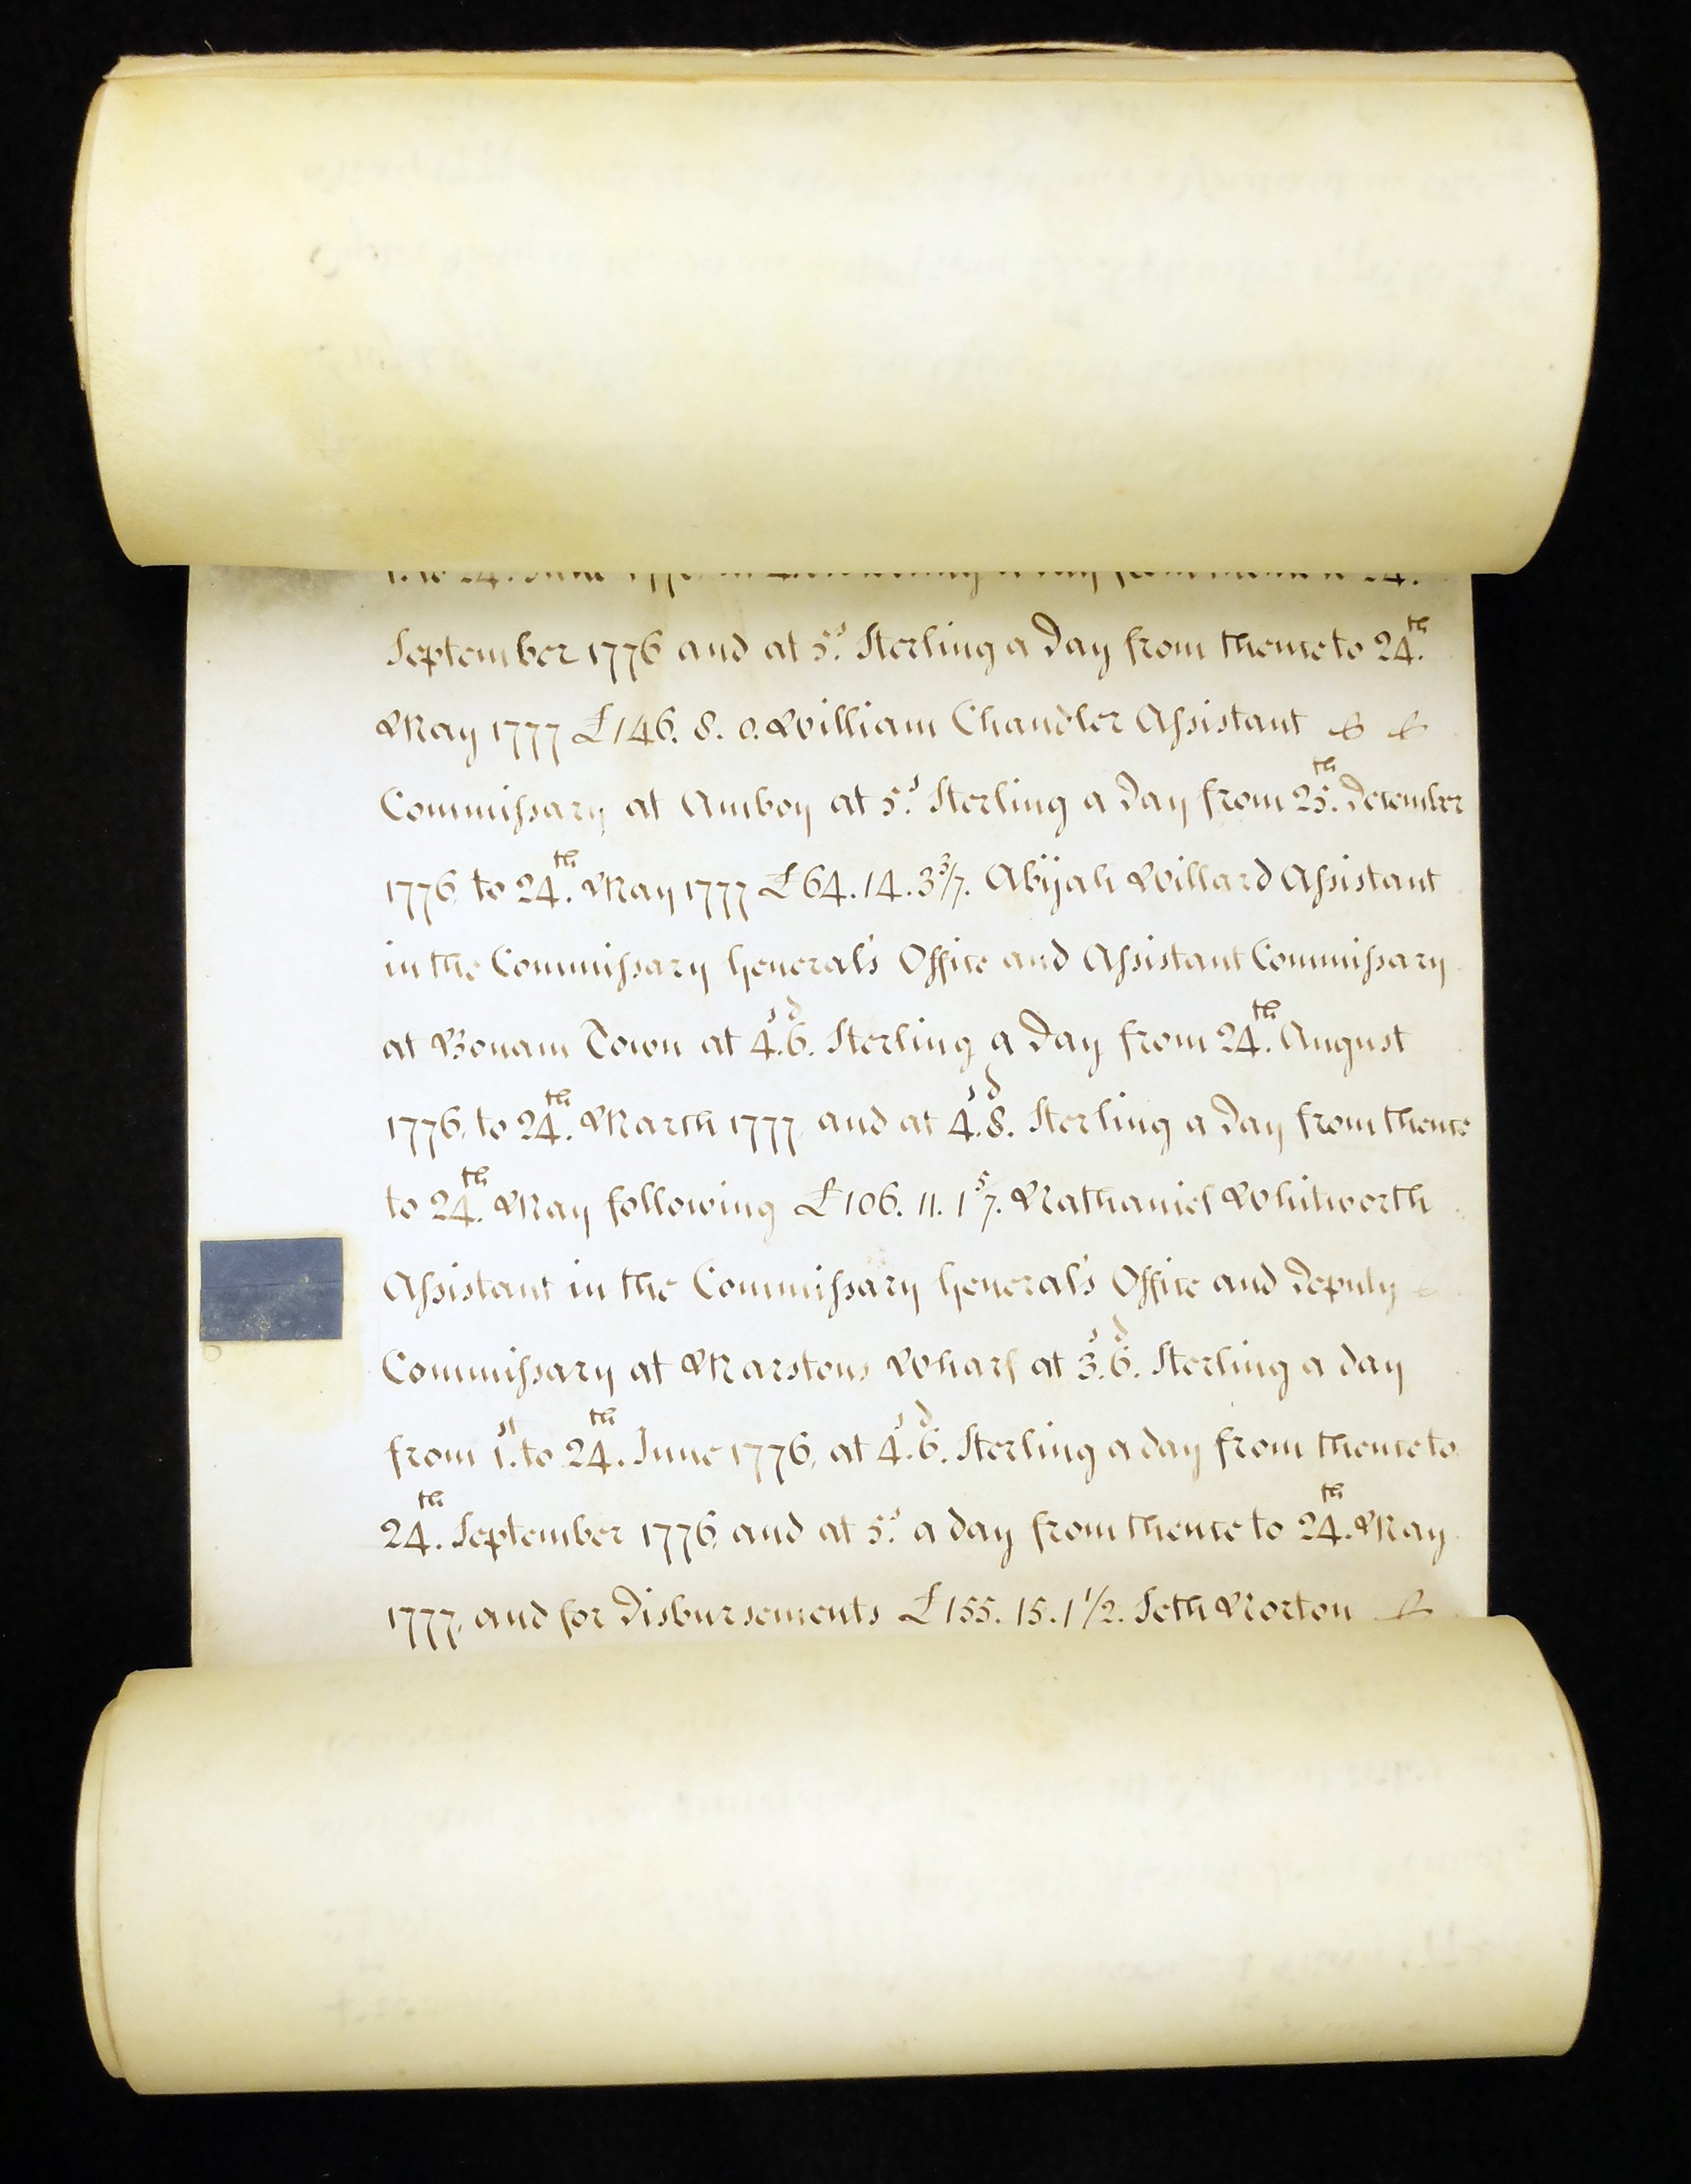 September 1776 and at 5.s Sterling a Day from thence to 24.th
May 1777 £146. 8. 0. William Chandler Assistant
Commissary at Amboy at 5.s Sterling a Day from 25.th December
1776 to 24.th May 1777 £64. 14. 3 3/7. Abijah Willard Assistant
in the Commissary General's Office and Assistant Commissary
at Bonam Town at 4.s 6.d Sterling a Day from 24.th August
1776, to 24.th March 1777 and at 4.s 8.d Sterling a Day from thence
to 24.th May following £106. 11. 1 5/7. Nathaniel Whitworth
Assistant in the Commissary General's Office and Deputy
Commissary at Marstons Wharf at 3.s 6.d Sterling a day
from 1.st to 24.th June 1776, at 4.s 6.d Sterling a day from thence to
24.th September 1776 and at 5.s a day from thence to 24.th May
1777, and for Disbursements £155. 15. 1 1/2. Seth Norton